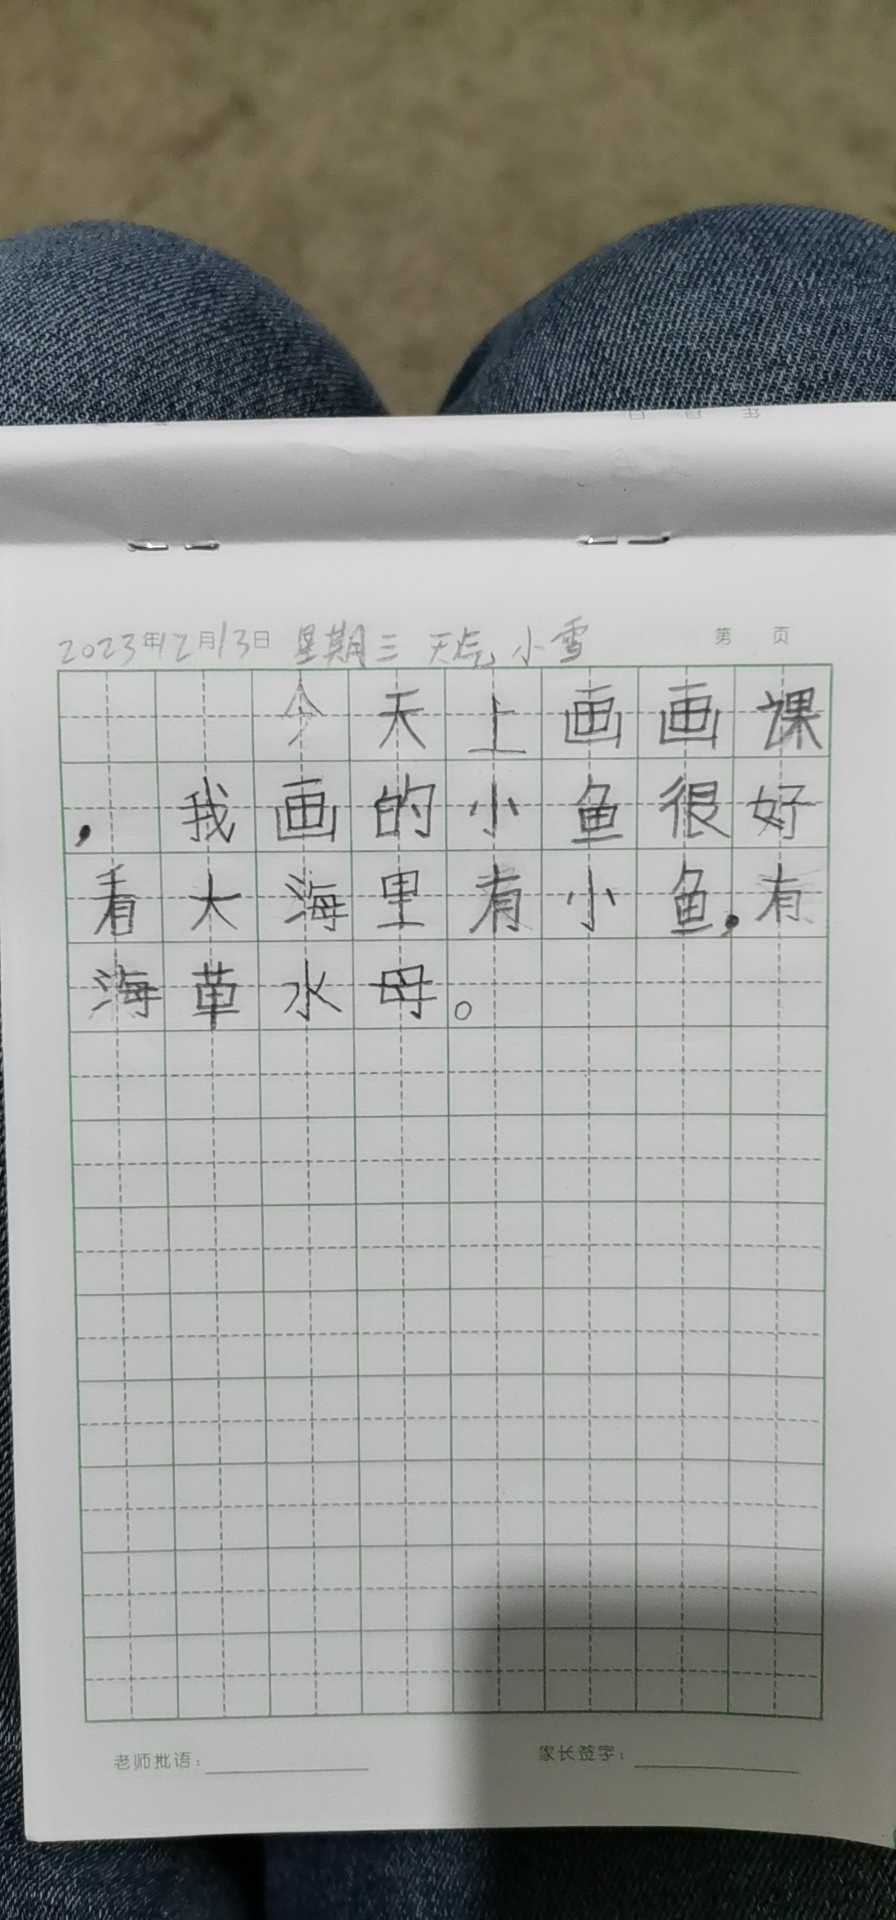 2023年12月13日 星期三 天气 小雪 第 页
今天上画画课
，我画的小鱼很好
看大海里有小鱼，有
海草水母。
老师批语：
家长签字：